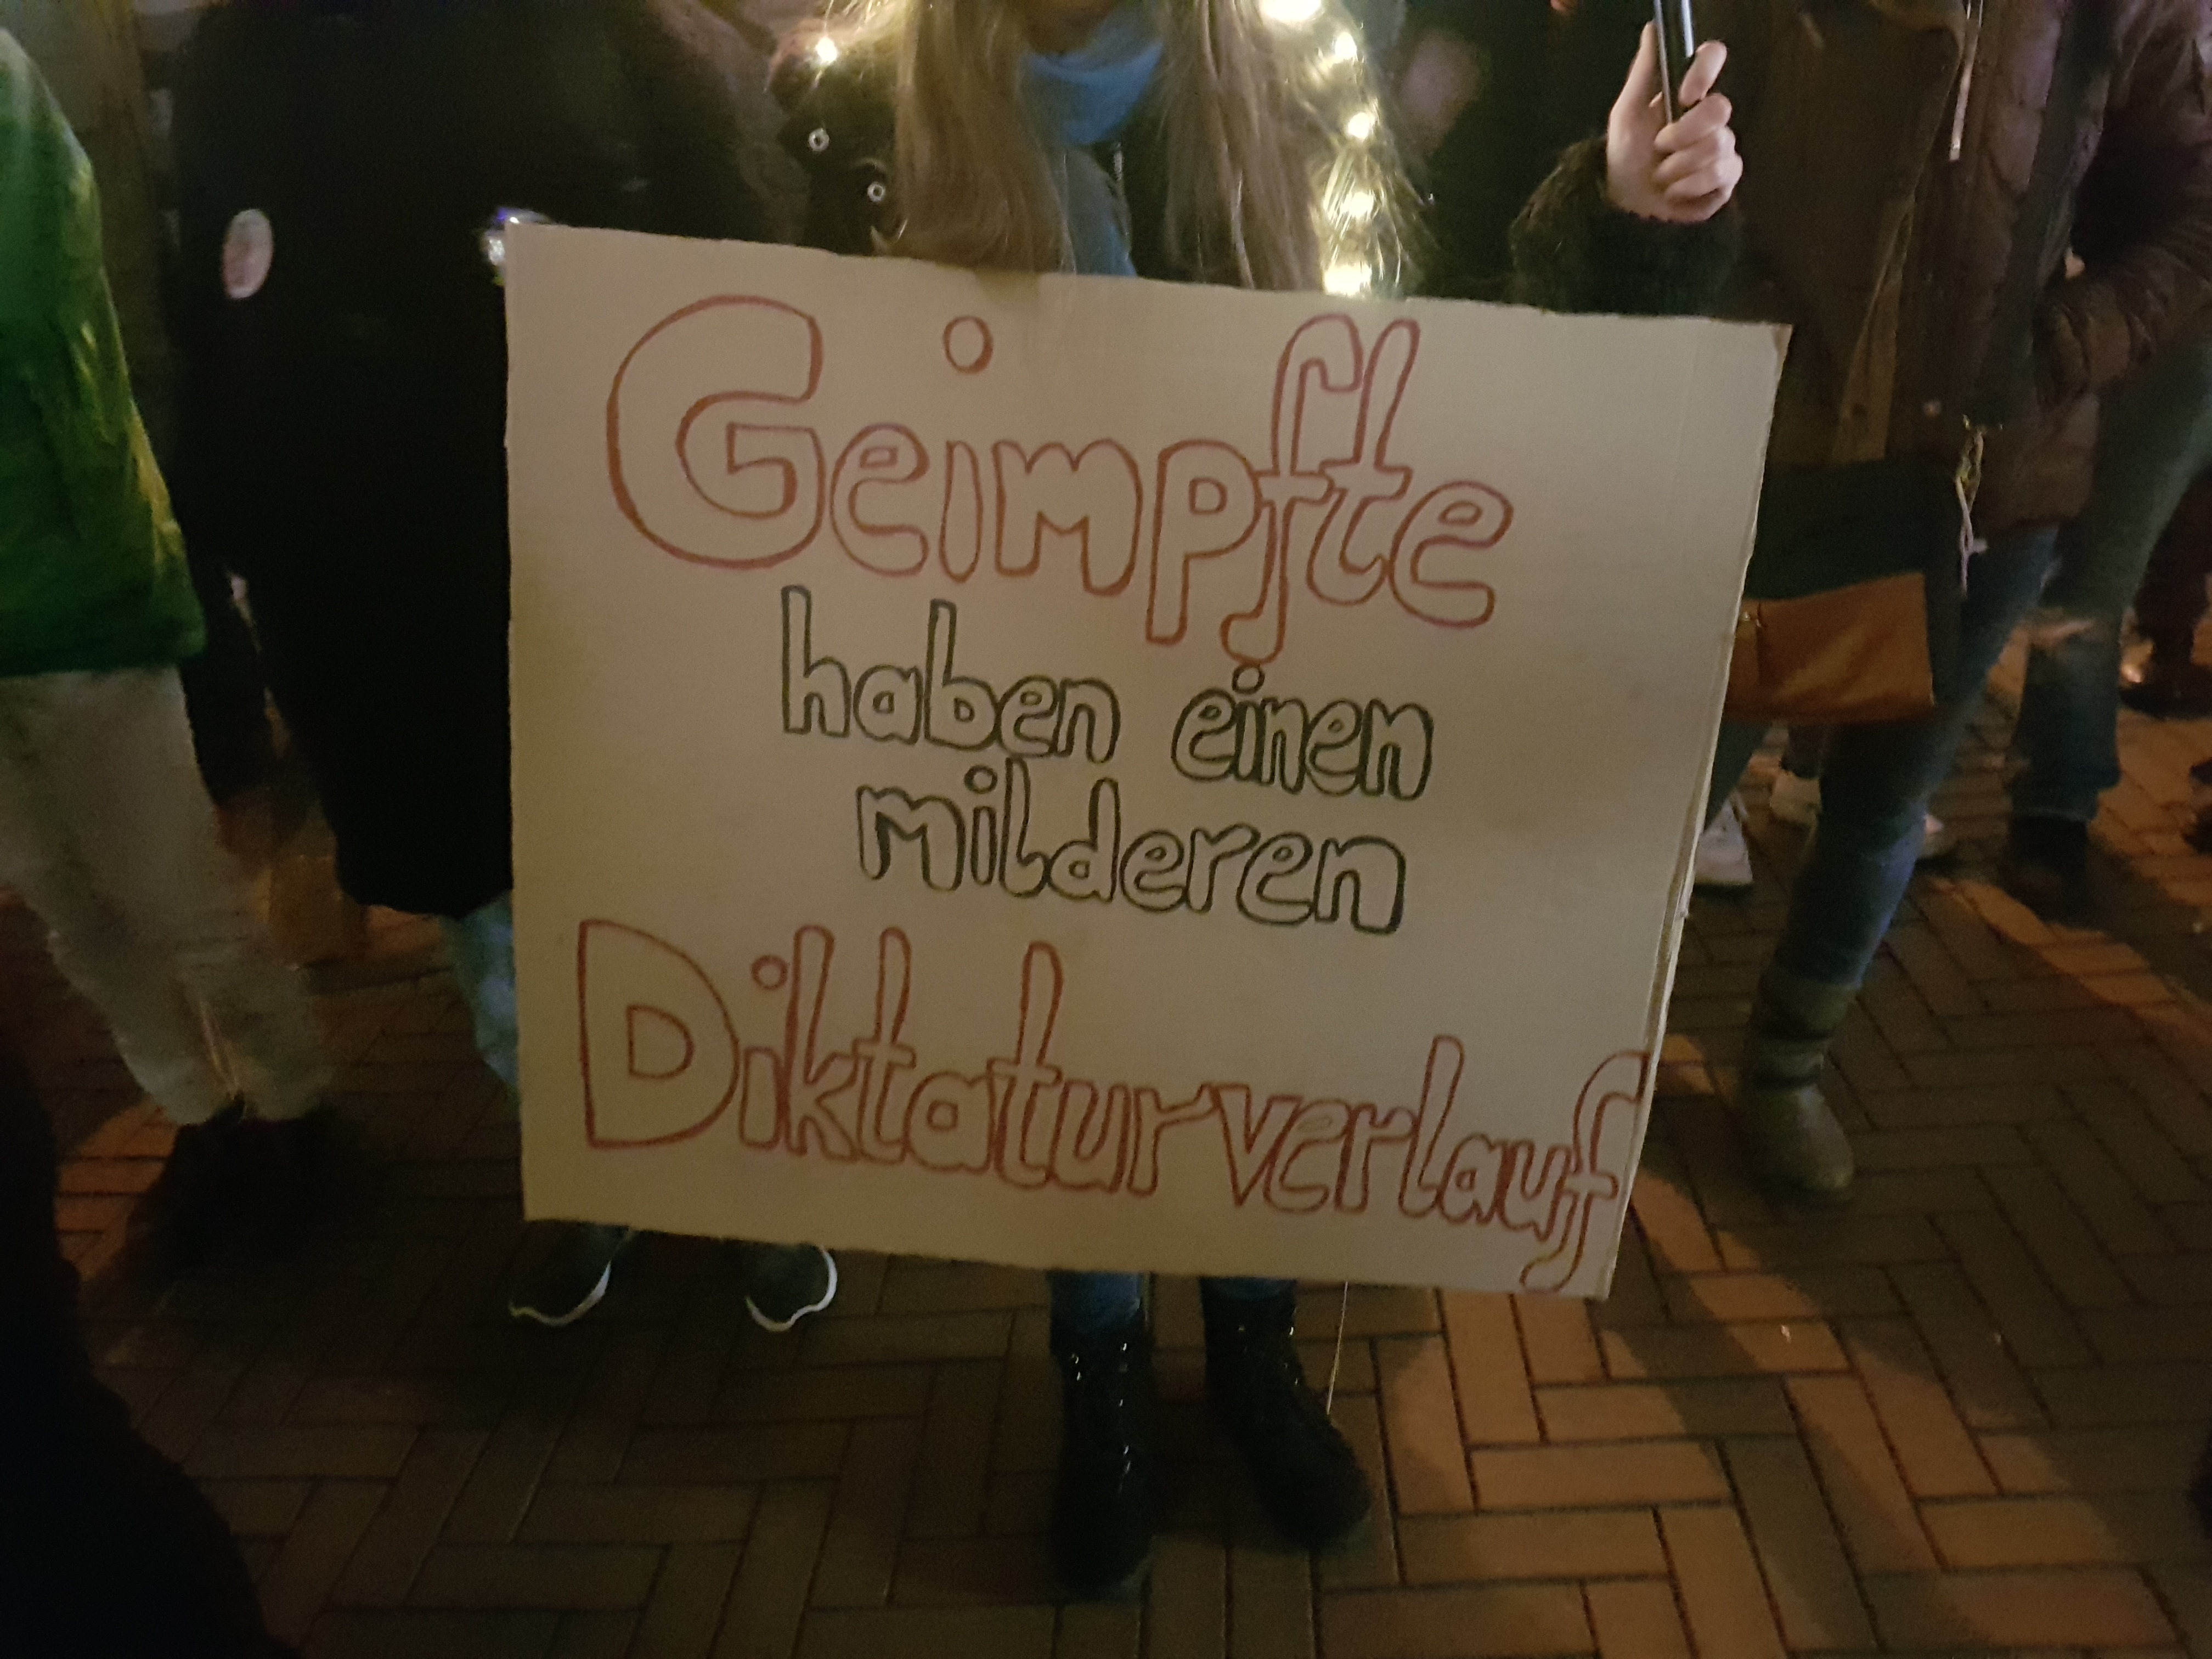 Geimpfte
haben einen
milderen
Diktaturverlauf